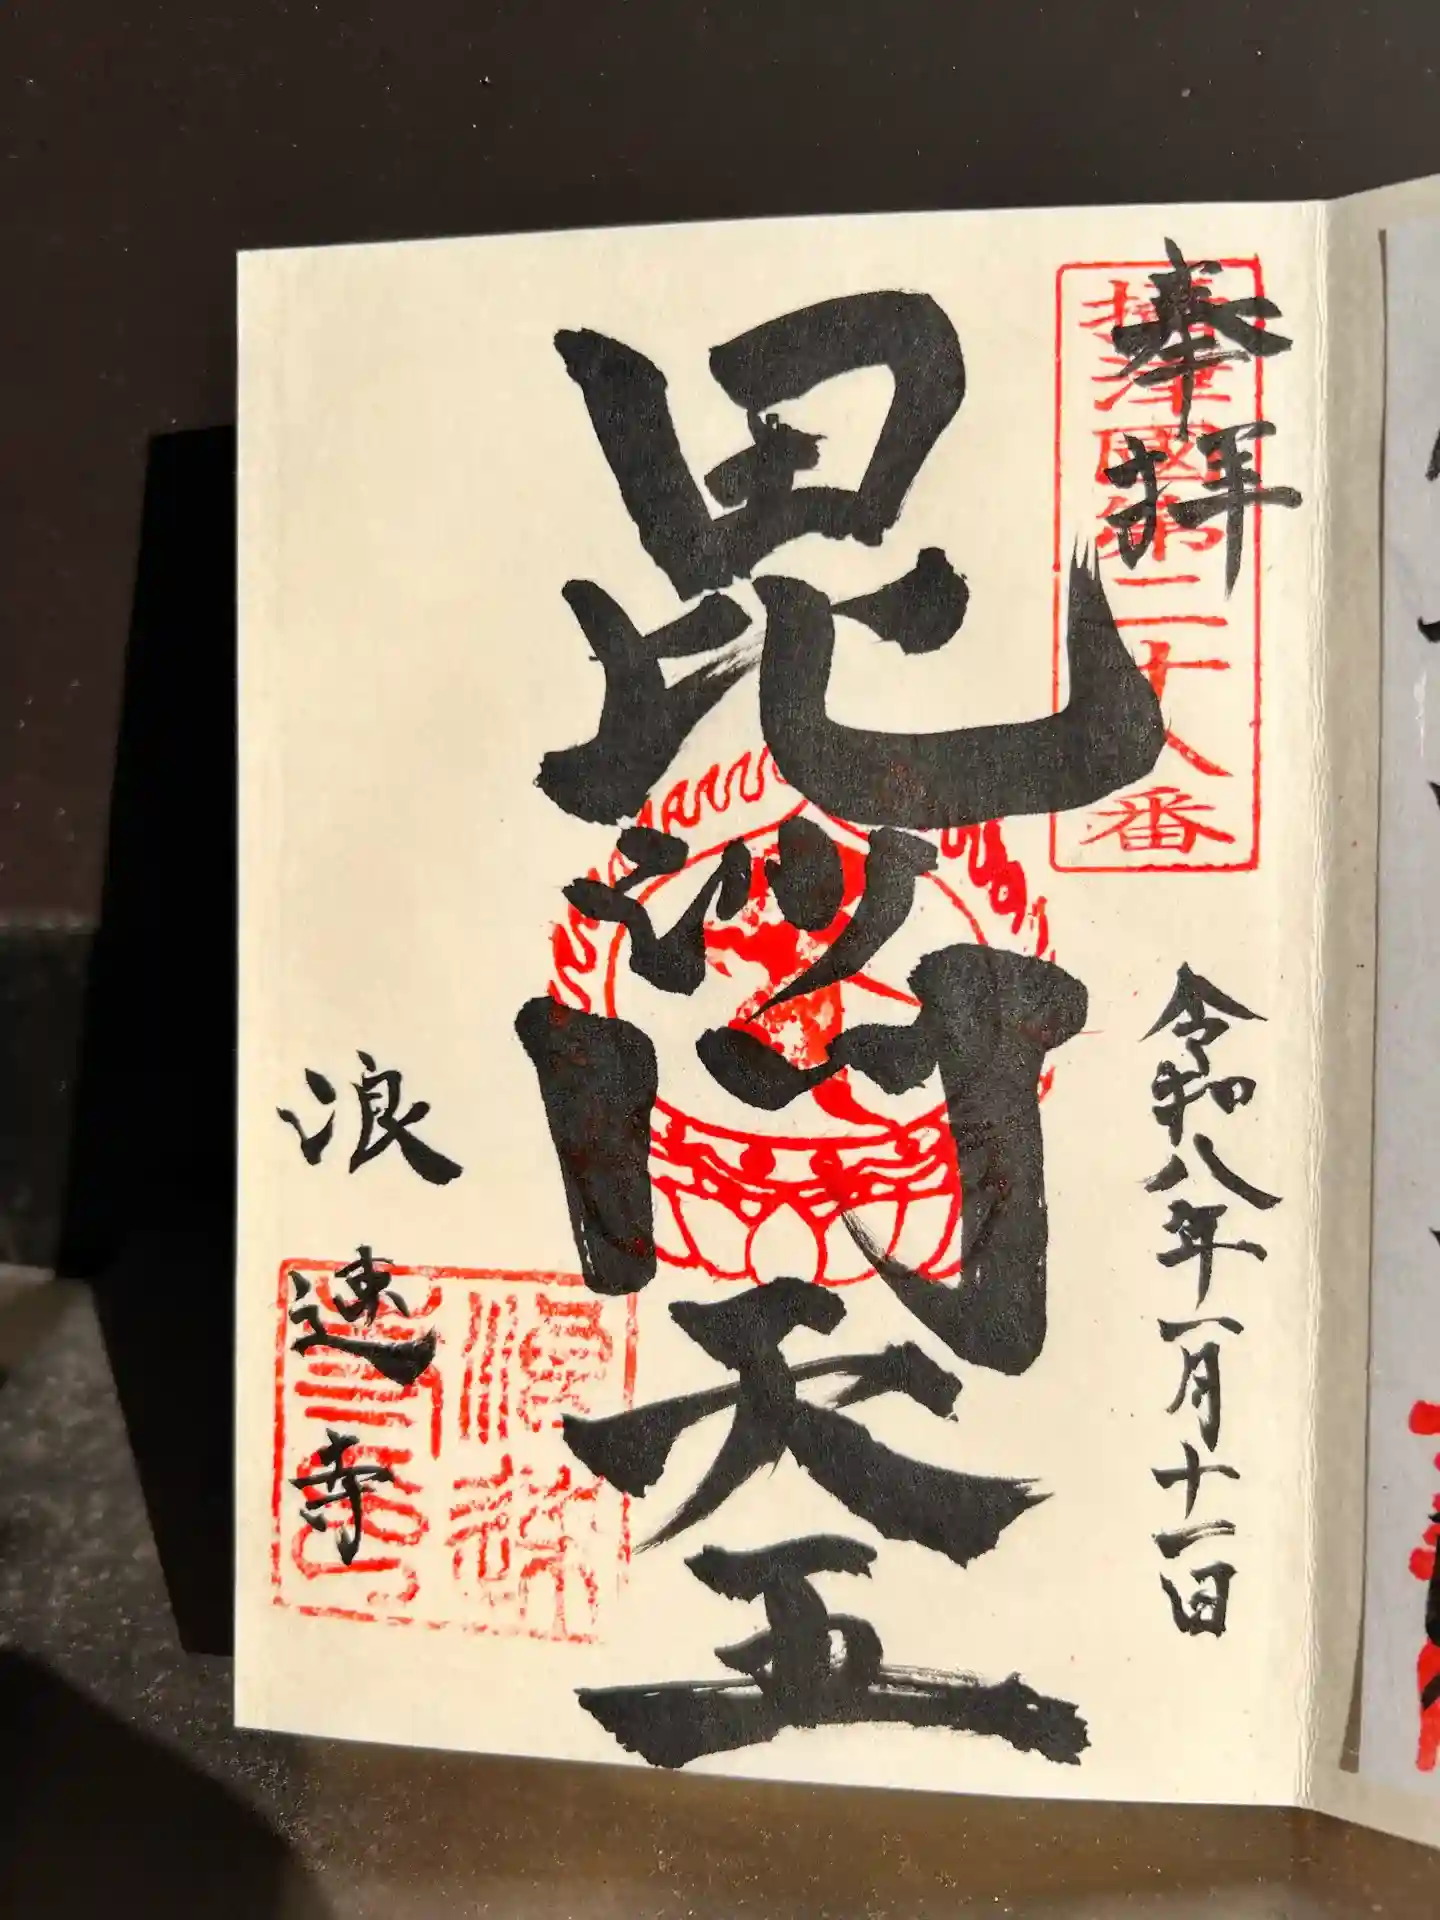 奉拝
攝津國第二十八番
令和八年一月十一日
毘沙門天王
浪速寺